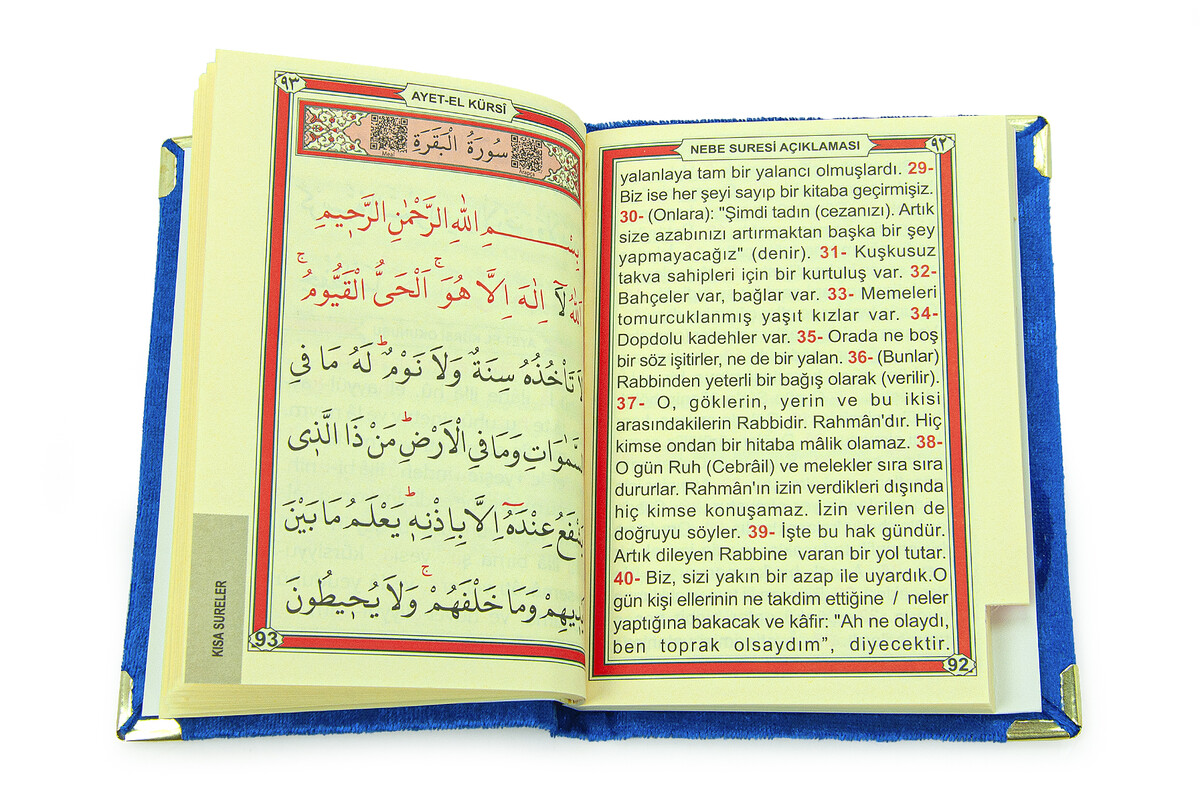 ٩٢
NEBE SURESİ AÇIKLAMASI
yalanlaya tam bir yalancı olmuşlardı. 29-
Biz ise her şeyi sayıp bir kitaba geçirmişiz.
30- (Onlara): "Şimdi tadın (cezanızı). Artık
size azabınızı artırmaktan başka bir şey
yapmayacağız" (denir). 31- Kuşkusuz
takva sahipleri için bir kurtuluş var. 32-
Bahçeler var, bağlar var. 33- Memeleri
tomurcuklanmış yaşıt kızlar var. 34-
Dopdolu kadehler var. 35- Orada ne boş
bir söz işitirler, ne de bir yalan. 36- (Bunlar)
Rabbinden yeterli bir bağış olarak (verilir).
37- O, göklerin, yerin ve bu ikisi
arasındakilerin Rabbidir. Rahmân'dır. Hiç
kimse ondan bir hitaba mâlik olamaz. 38-
O gün Ruh (Cebrâil) ve melekler sıra sıra
dururlar. Rahmân'ın izin verdikleri dışında
hiç kimse konuşamaz. İzin verilen de
doğruyu söyler. 39- İşte bu hak gündür.
Artık dileyen Rabbine varan bir yol tutar.
40- Biz, sizi yakın bir azap ile uyardık.O
gün kişi ellerinin ne takdim ettiğine / neler
yaptığına bakacak ve kâfir: "Ah ne olaydı,
ben toprak olsaydım”, diyecektir.
92
٩٣
AYET-EL KÜRSÎ
سُورَةُ الْبَقَرَةِ
Meal
Arapça
بِسْـــــمِ اللهِ الرَّحْمٰنِ الرَّحٖيمِ
اَللّٰهُ لَٓا اِلٰهَ اِلَّا هُوَۚ اَلْحَيُّ الْقَيُّومُۚ
لَا تَأْخُذُهُ سِنَةٌ وَلَا نَوْمٌؕ لَهُ مَا فِي
السَّمٰوَاتِ وَمَا فِي الْاَرْضِؕ مَنْ ذَا الَّذٖي
يَشْفَعُ عِنْدَهُٓ اِلَّا بِاِذْنِهٖؕ يَعْلَمُ مَا بَيْنَ
اَيْدٖيهِمْ وَمَا خَلْفَهُمْۚ وَلَا يُحٖيطُونَ
93
KISA SURELER